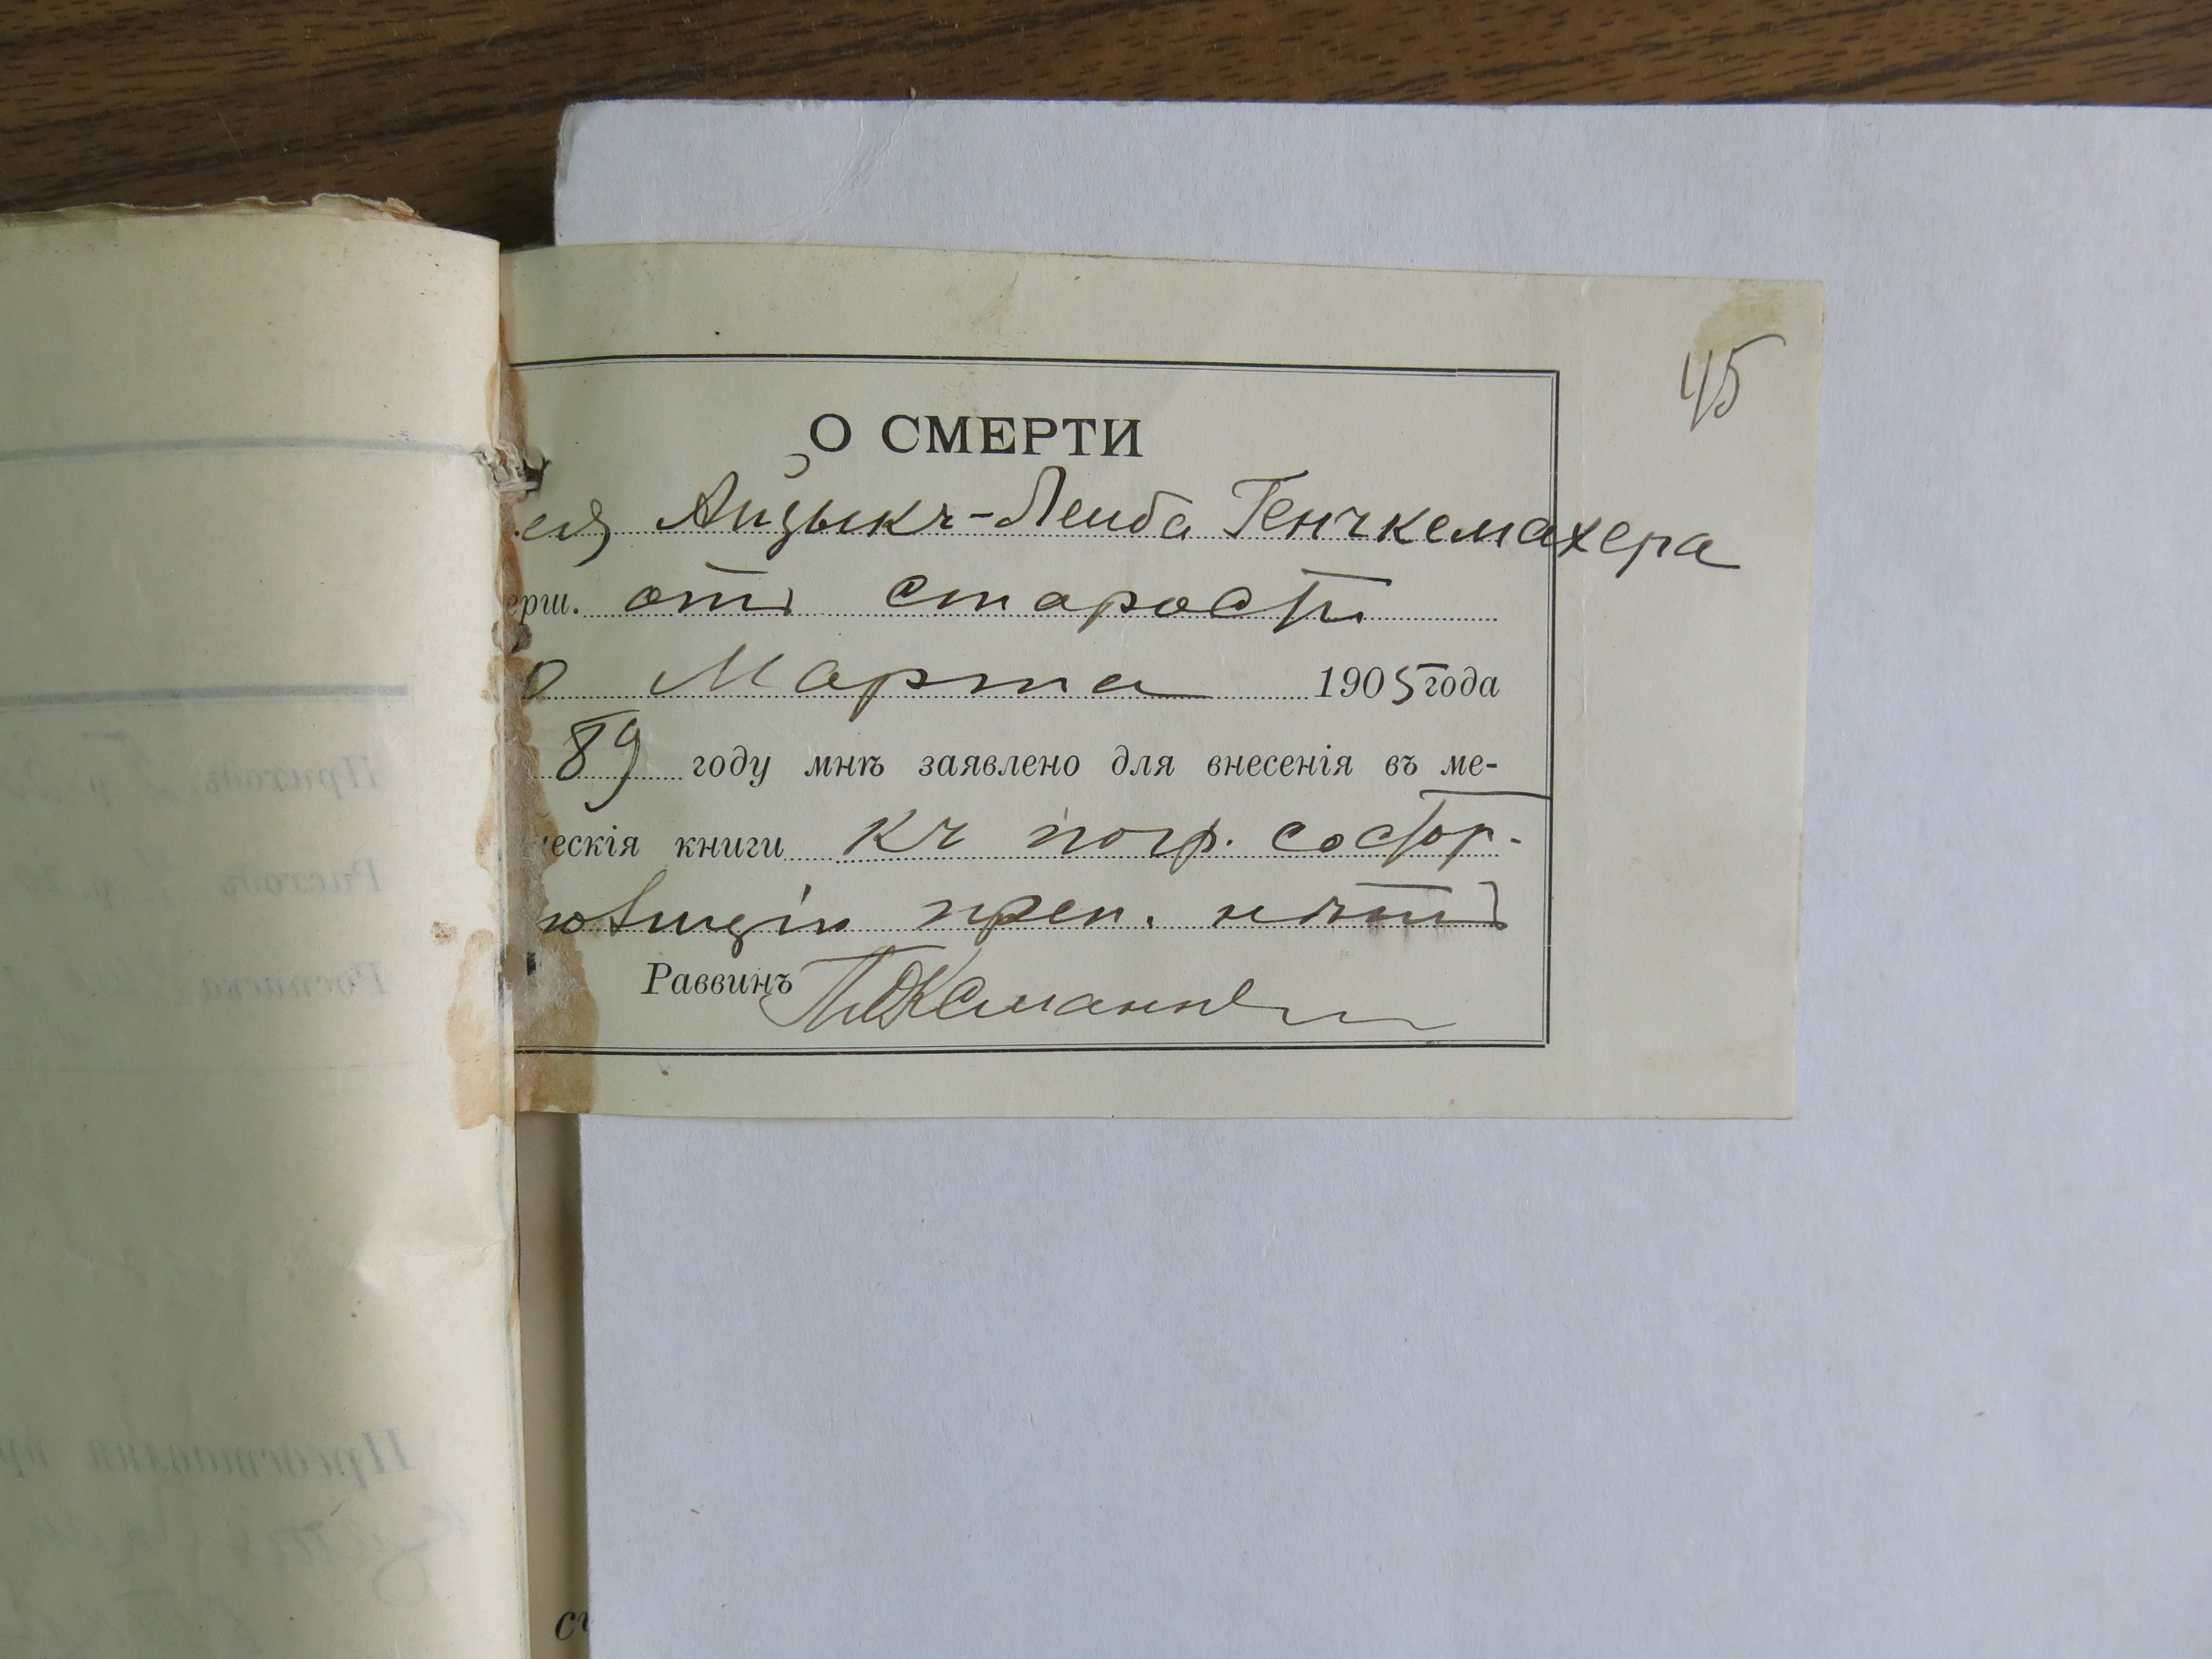 45
О СМЕРТИ
Айзыкъ-Лейба Генчкемахера
ерш. отъ старости
0 Марта 1905 года
89 году мнѣ заявлено для внесенія въ ме-
ческія книги къ погр. состор.
преп. нѣтъ
Раввинъ
Приходъ
Расходъ
Росписка